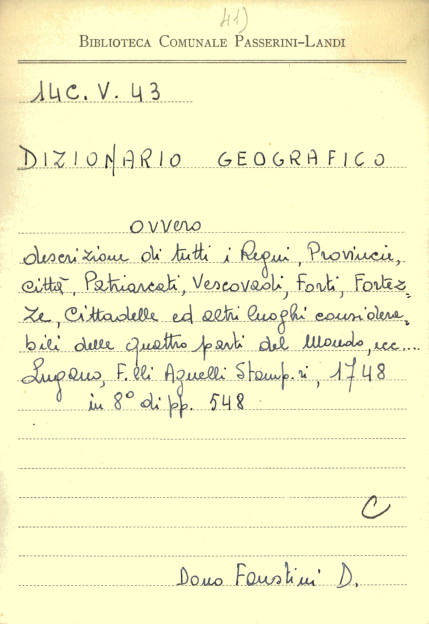 41)
BIBLIOTECA COMUNALE PASSERINI-LANDI
14C. V. 43
DIZIONARIO GEOGRAFICO
ovvero
descrizione di tutti i Regni, Provincie,
città, Patriarcati, Vescovadi, Forti, Fortez=
ze, Cittadelle ed altri luoghi considera=
bili delle quattro parti del Mondo, ecc....
Lugano, F.lli Agnelli Stamp.ri, 1748
in 8° di pp. 548
C
Dono Faustini D.